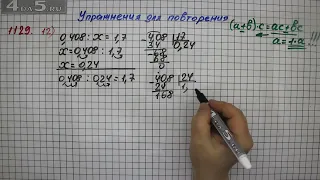 4ou5.ru
Упражнения для повторения
1129. 12)
(a+b)·c=ac+bc
a=1·a !!!
0,408 : x = 1,7
x = 0,408 : 1,7
x = 0,24
0,408 : 0,24 = 1,7
408 17
34 0,24
68
68
0
408 24
24 1,
168